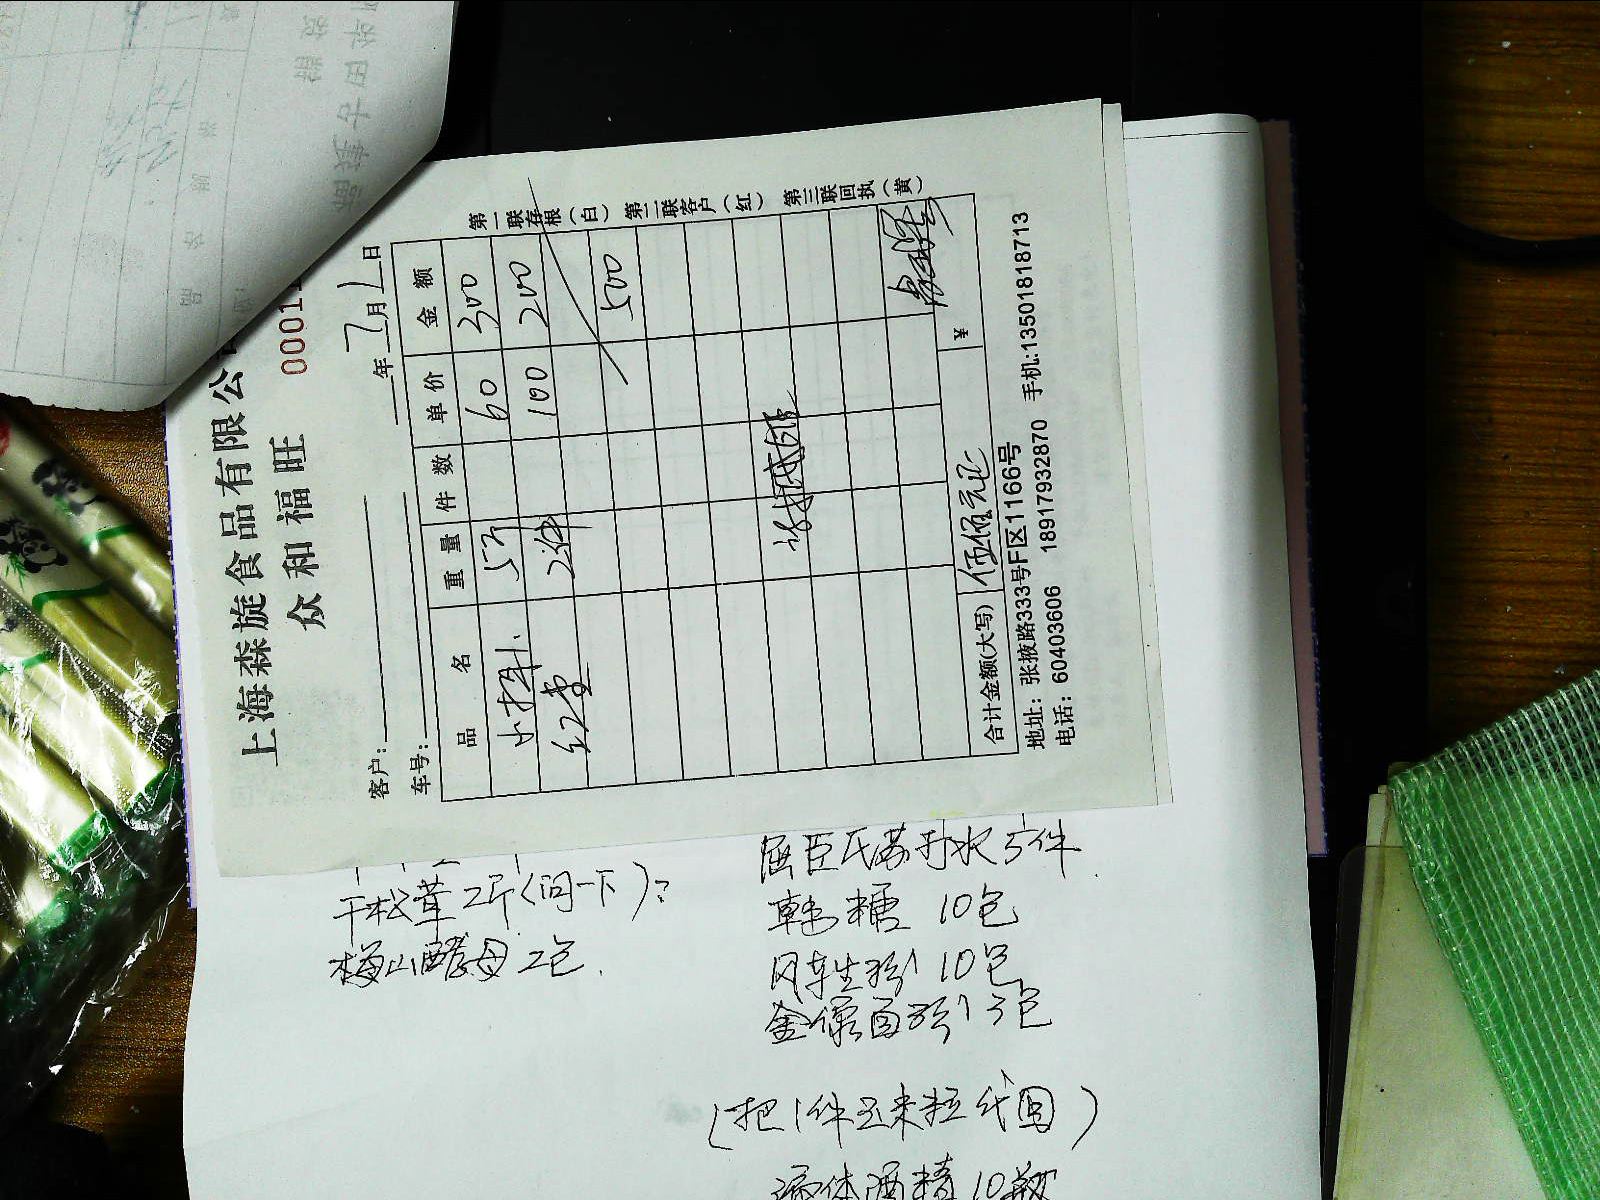 上海森旋食品有限公
众和福旺
00011
客户:
年7月1日
车号:
品 名 重 量 件 数 单 价 金 额
5斤 60 300
红 2件 100 200
500
合计金额(大写) 伍佰元正 ¥
地址: 张掖路333号F区1166号 手机:13501818713
电话: 60403606 18917932870
第一联存根(白) 第二联客户(红) 第三联回执(黄)
干松茸2斤(问一下)?
梅山酵母2包.
屈臣氏苏打水5件.
韩糖 10包
风车生粉 10包
金像面粉 3包
(把1件玉米粒代回)
液体酒精10瓶